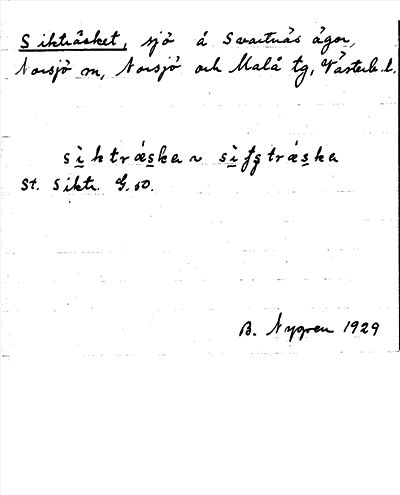 Sikträsket, sjö å Svartnäs ägor,
Norsjö m, Norsjö och Malå tg, Västerb. l.
siktræska ~ siʃstræska
St. Siktr. G. 50.
B. Nygren 1929